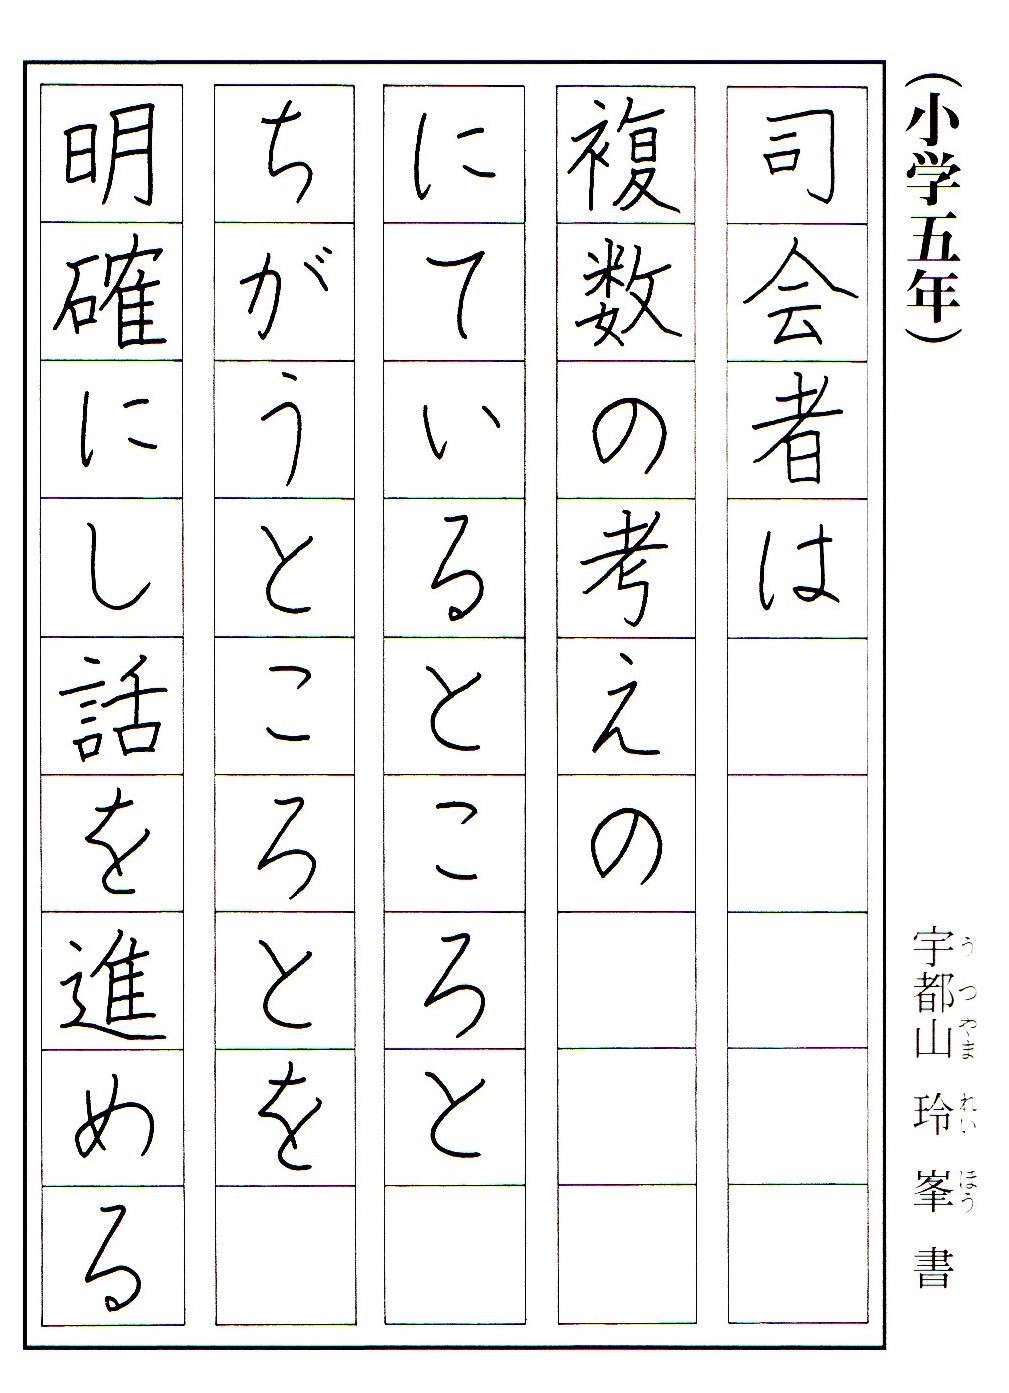 （小学五年）
宇都山玲峯書
うつやまれいほう
司会者は
複数の考えの
にているところと
ちがうところとを
明確にし話を進める